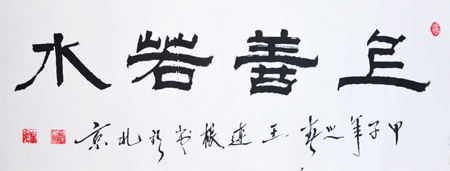 上善若水
甲子年之春王連根書於北京